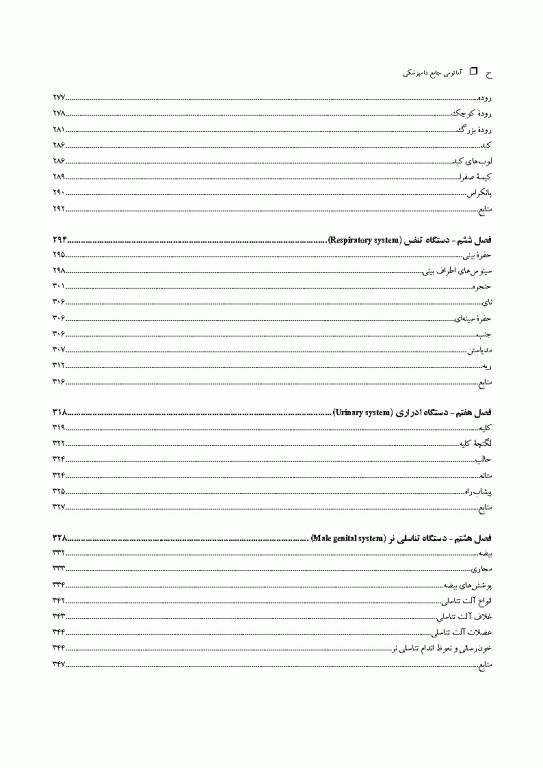 ح ❐ آناتومی جامع دامپزشکی
روده ۲۷۷
رودهٔ کوچک ۲۷۸
رودهٔ بزرگ ۲۸۱
کبد ۲۸۶
لوب‌های کبد ۲۸۶
کیسهٔ صفرا ۲۸۹
پانکراس ۲۹۰
منابع ۲۹۲
فصل ششم - دستگاه تنفس (Respiratory system) ۲۹۴
حفرهٔ بینی ۲۹۵
سینوس‌های اطراف بینی ۲۹۸
حنجره ۳۰۱
نای ۳۰۶
حفرهٔ سینه‌ای ۳۰۶
جنب ۳۰۶
مدیاستن ۳۰۷
ریه ۳۱۲
منابع ۳۱۶
فصل هفتم - دستگاه ادراری (Urinary system) ۳۱۸
کلیه ۳۱۹
لگنچهٔ کلیه ۳۲۲
حالب ۳۲۴
مثانه ۳۲۴
پیشاب‌راه ۳۲۵
منابع ۳۲۷
فصل هشتم - دستگاه تناسلی نر (Male genital system) ۳۲۸
بیضه ۳۳۲
مجاری ۳۳۳
پوشش‌های بیضه ۳۳۴
انواع آلت تناسلی ۳۴۲
غلاف آلت تناسلی ۳۴۳
عضلات آلت تناسلی ۳۴۴
خون‌رسانی و نعوظ اندام تناسلی نر ۳۴۴
منابع ۳۴۷